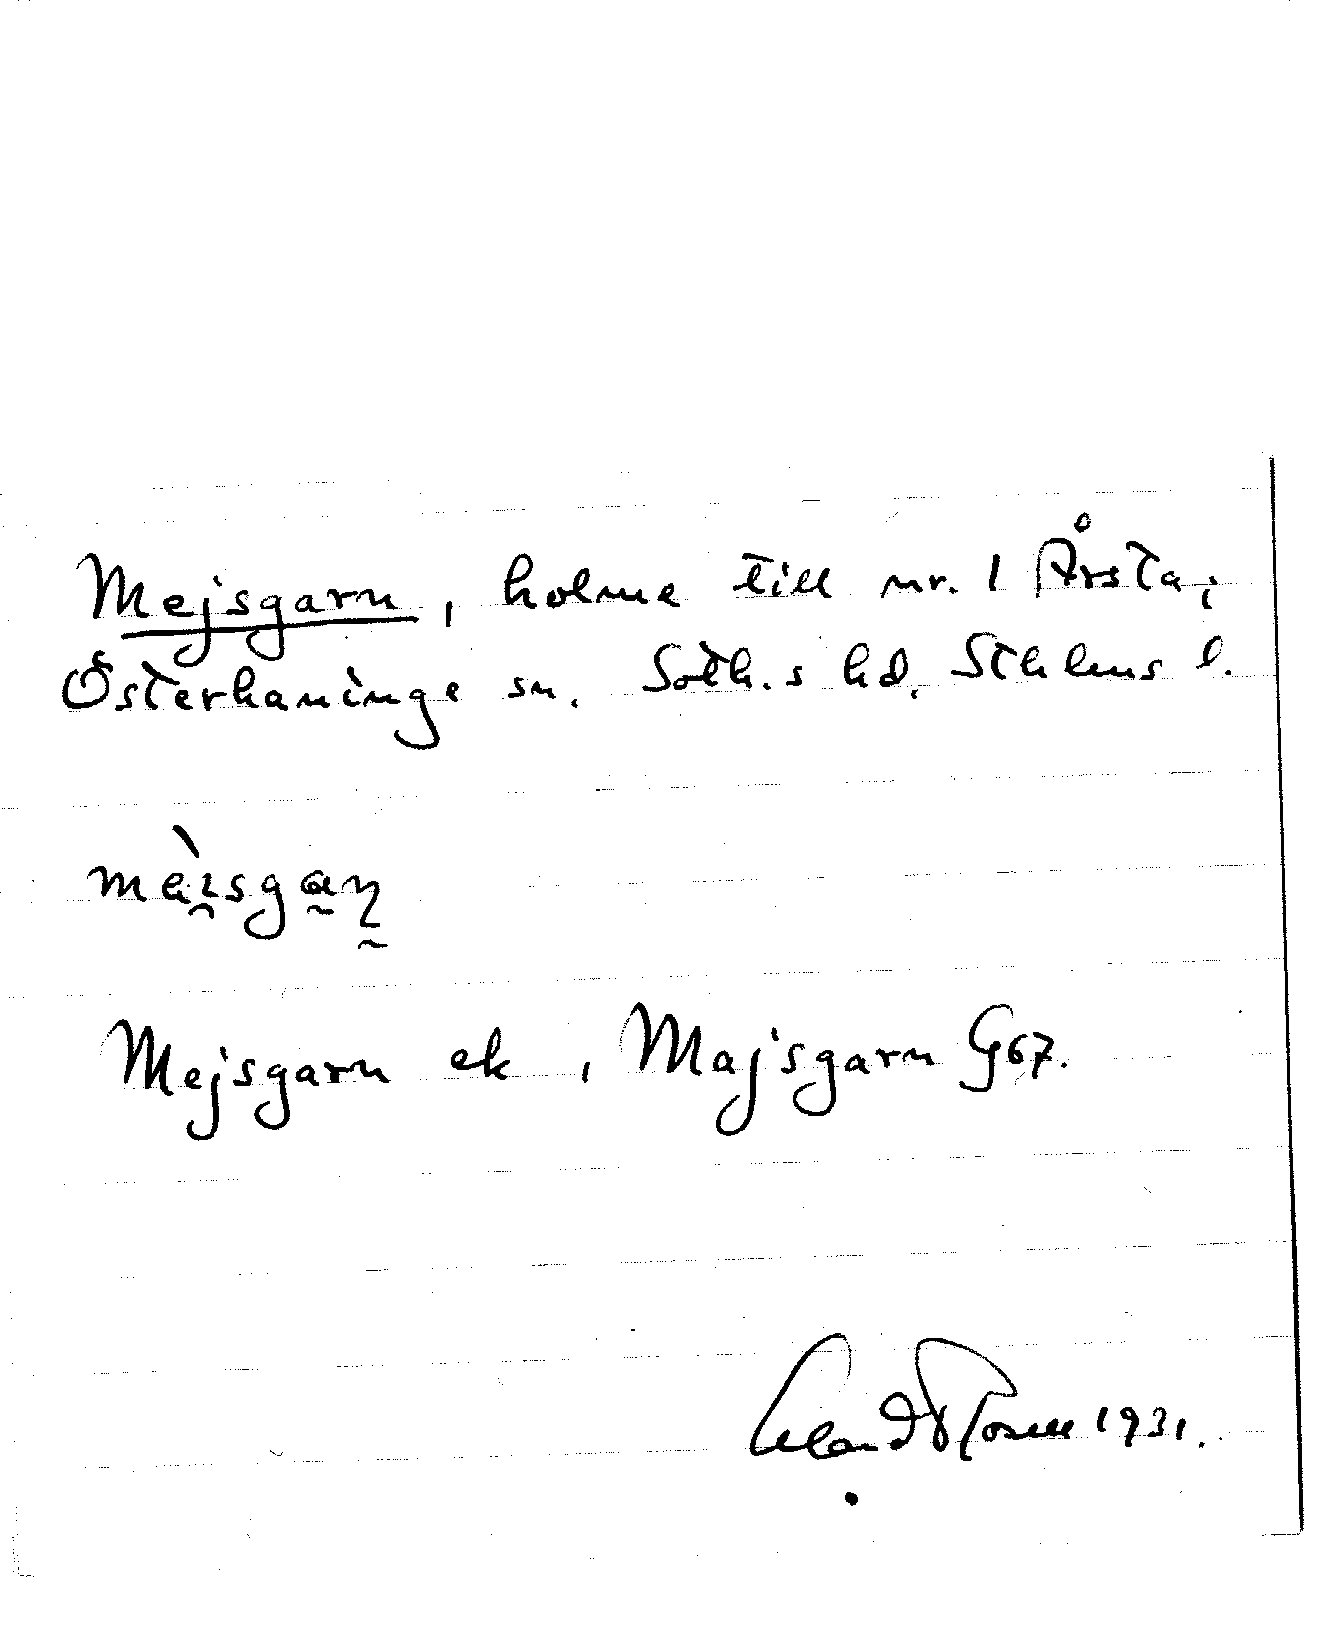 Mejsgarn, holme till nr. 1 Årsta,
Österhaninge sn. Soth.s hd. Sthlms l.
mài̯sga̰ṉ
Mejsgarn ek, Majsgarn G67.
1931.